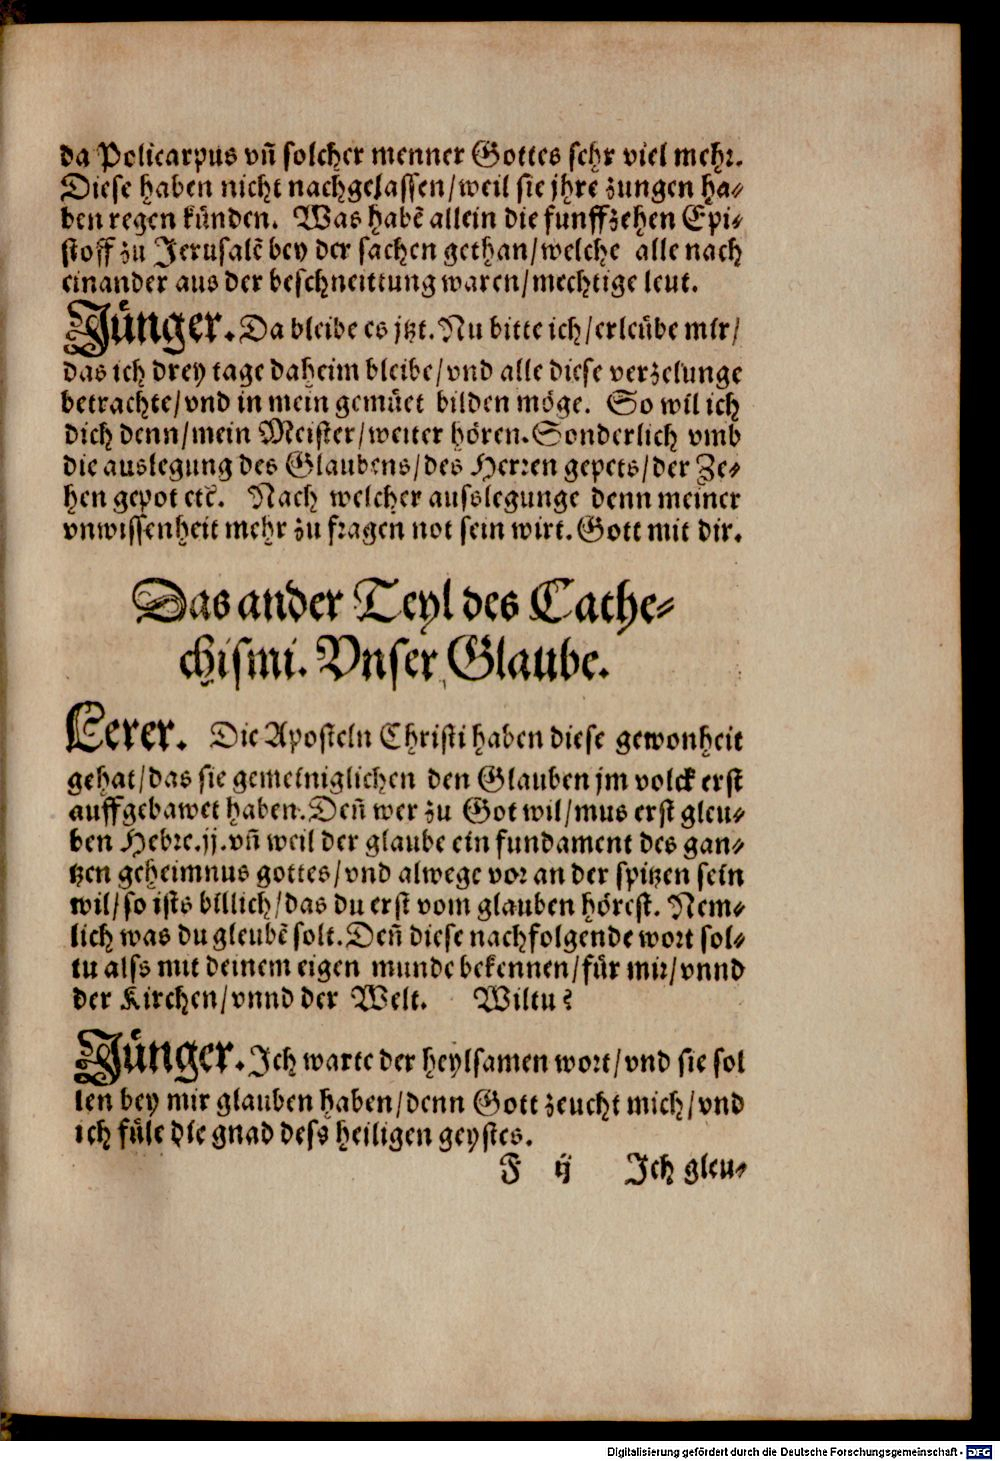 da Policarpus vñ solcher menner Gottes sehr viel mehr.
Diese haben nicht nachgelassen/weil sie jhre zungen ha-
ben regen künden. Was habẽ allein die funffzehen Epi-
stoff zu Jerusalẽ bey der sachen gethan/welche alle nach
einander aus der beschneittung waren/mechtige leut.
Jünger. Da bleibe es jtzt. Nu bitte ich/erleübe mir/
das ich drey tage daheim bleibe/vnd alle diese verzelunge
betrachte/vnd in mein gemüet bilden möge. So wil ich
dich denn/mein Meister/weiter hören. Sonderlich vmb
die auslegung des Glaubens/des Herren gepets/der Ze-
hen gepot etc̃. Nach welcher ausslegunge denn meiner
vnwissenheit mehr zu fragen not sein wirt. Gott mit dir.
Das ander Teyl des Cathe-
chismi. Vnser Glaube.
Lerer. Die Aposteln Christi haben diese gewonheit
gehat/das sie gemeiniglichen den Glauben jm volck erst
auffgebawet haben. Deñ wer zu Got wil/mus erst gleu-
ben Hebre.ij. vñ weil der glaube ein fundament des gan-
tzen geheimnus gottes/vnd alwege vor an der spitzen sein
wil/so ists billich/das du erst vom glauben hörest. Nem-
lich was du gleubẽ solt. Deñ diese nachfolgende wort sol-
tu alss mit deinem eigen munde bekennen/für mir/vnnd
der Kirchen/vnnd der Welt. Wiltu?
Jünger. Ich warte der heylsamen wort/vnd sie sol
len bey mir glauben haben/denn Gott zeucht mich/vnd
ich füle die gnad dess heiligen geystes.
F ij Ich gleu-
Digitalisierung gefördert durch die Deutsche Forschungsgemeinschaft - DFG